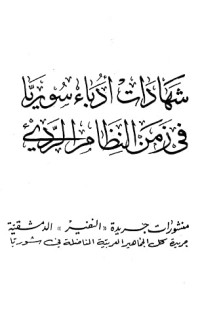 شهادات أدباء سوريا
في زمن النظام الرديء
منشورات جريدة "النفير" الدمشقية
جريدة كل الجماهير العربية المناضلة في سوريا